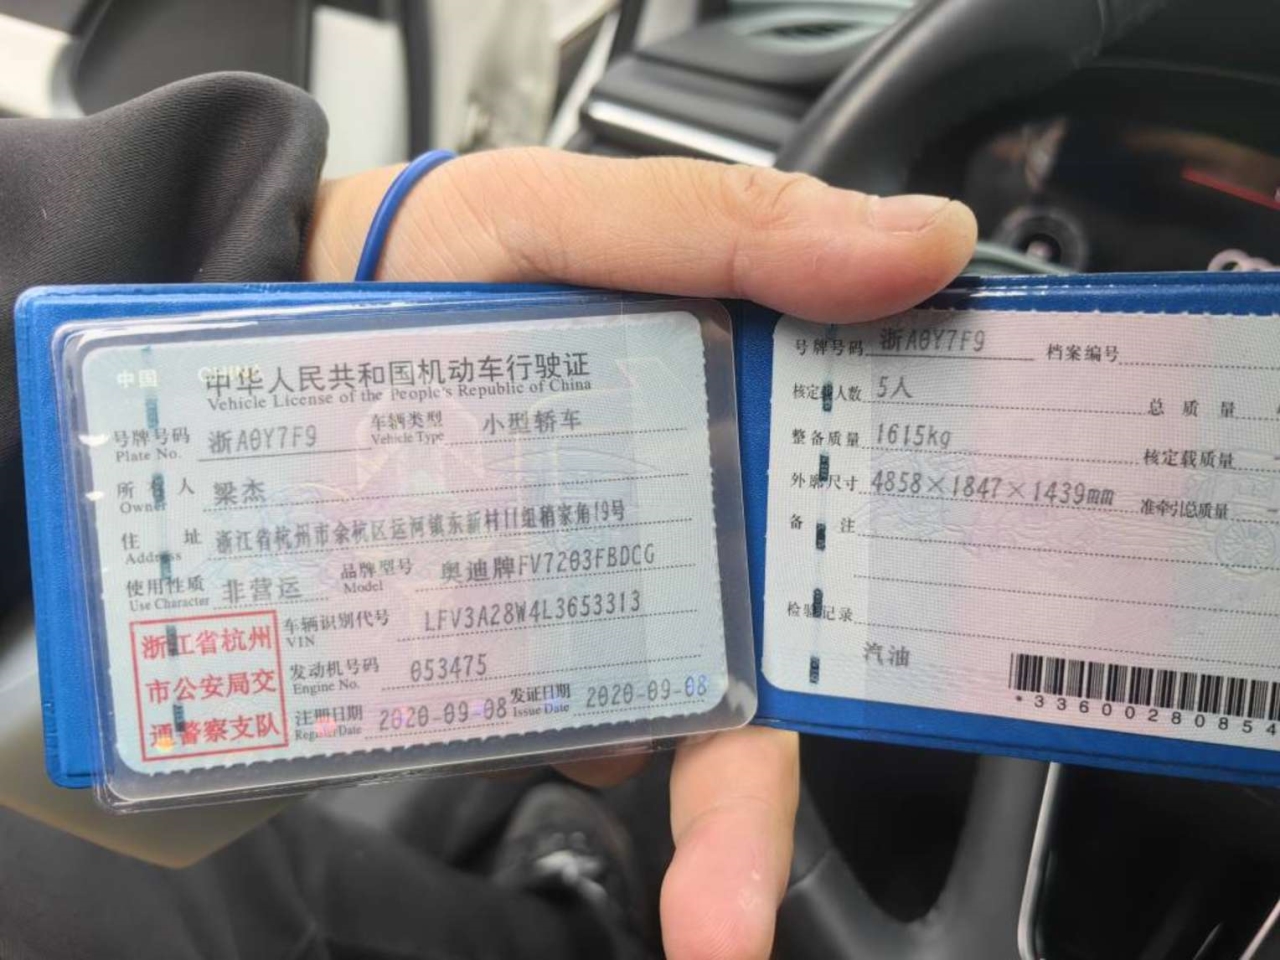 中国 CHINA
中华人民共和国机动车行驶证
Vehicle License of the People's Republic of China
号牌号码 浙A0Y7F9 车辆类型 小型轿车
Plate No. Vehicle Type
所有人 梁杰
Owner
住址 浙江省杭州市余杭区运河镇东新村11组稍家角19号
Address
使用性质 非营运 品牌型号 奥迪牌FV7203FBDCG
Use Character Model
浙江省杭州
市公安局交
通警察支队
车辆识别代号 LFV3A28W4L3653313
VIN
发动机号码 053475
Engine No.
注册日期 2020-09-08 发证日期 2020-09-08
Register Date Issue Date
号牌号码 浙A0Y7F9 档案编号
核定载人数 5人 总质量
整备质量 1615kg 核定载质量
外廓尺寸 4858×1847×1439mm 准牵引总质量
备注
检验记录
汽油
*33600280854